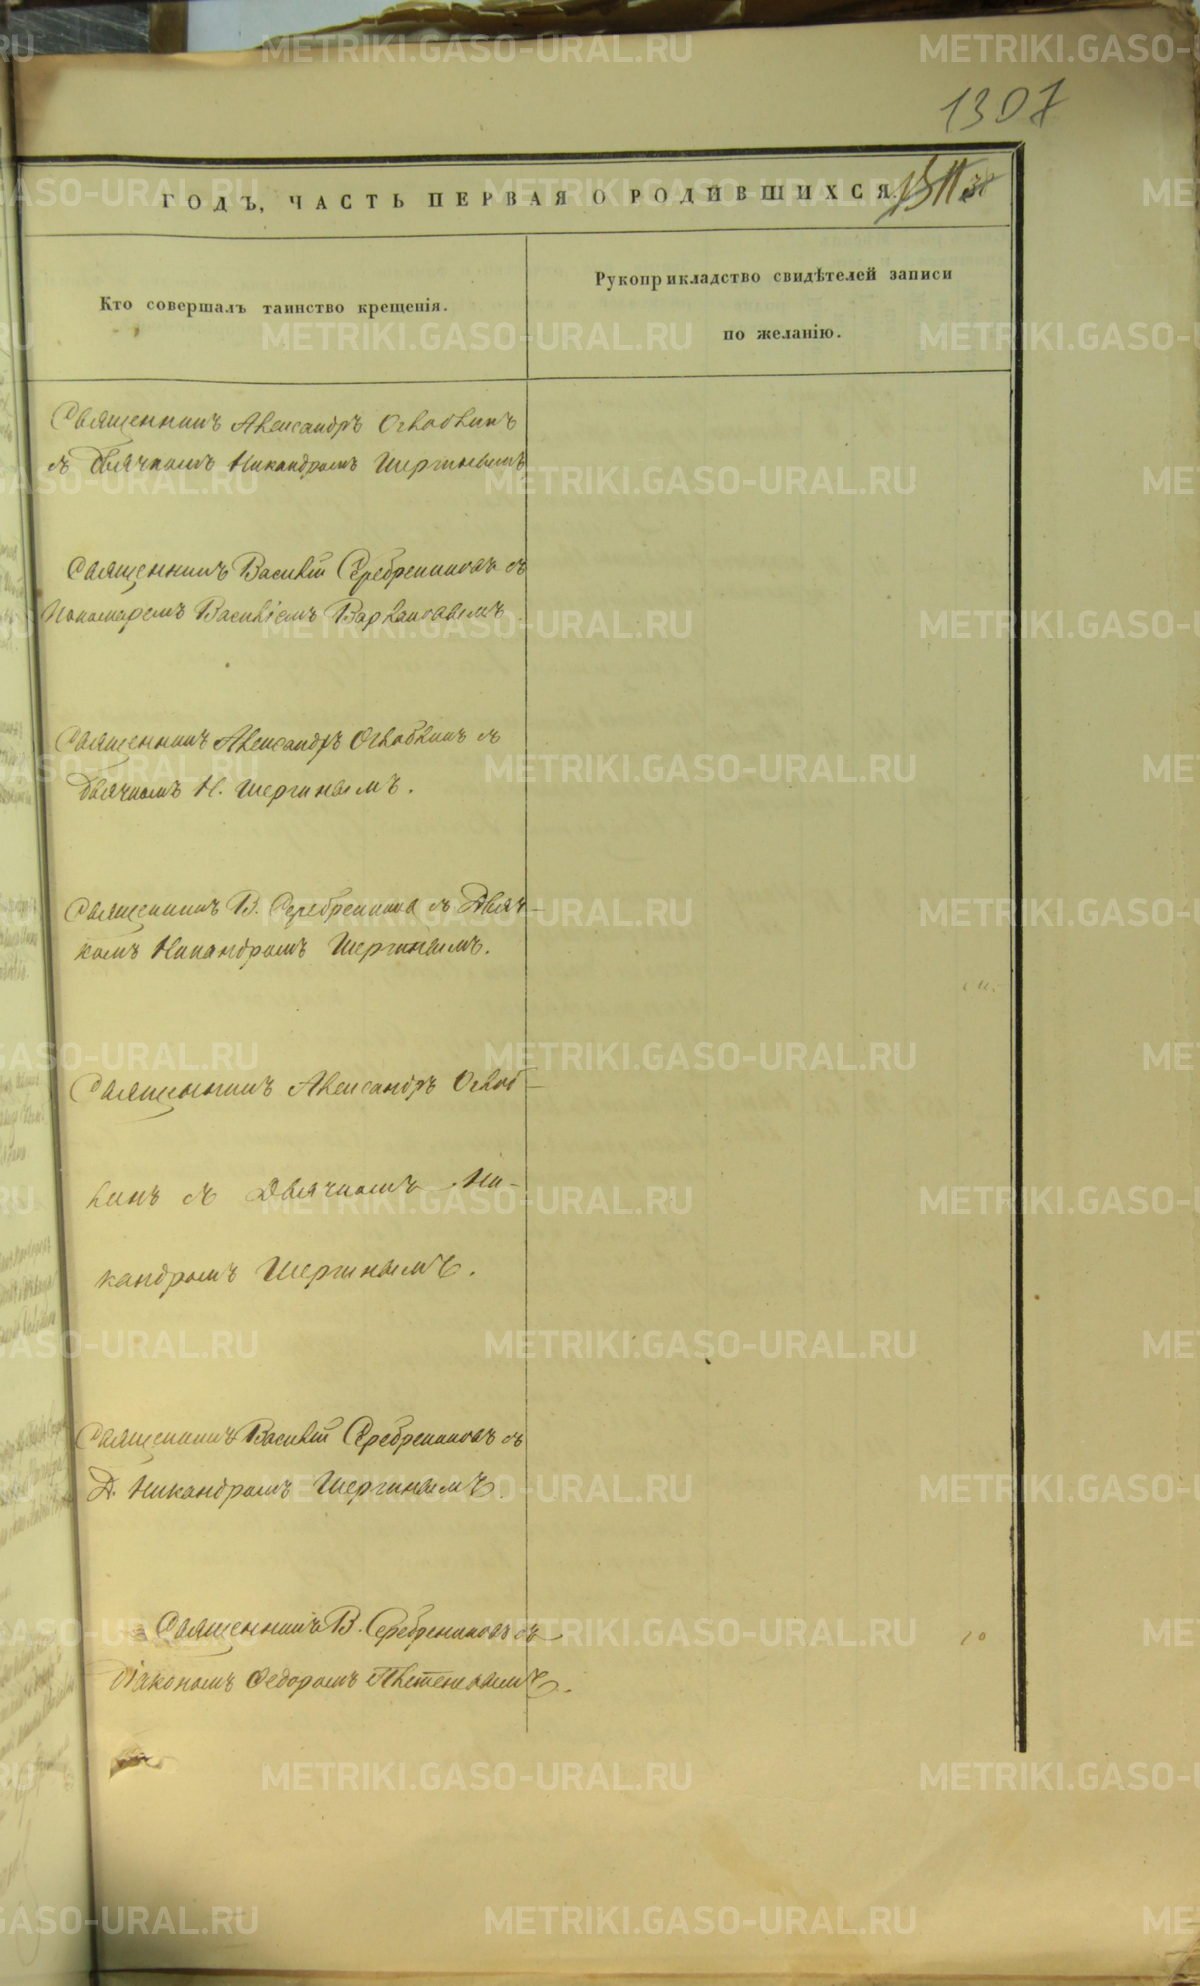 1307
ГОДЪ, ЧАСТЬ ПЕРВАЯ О РОДИВШИХСЯ.
Кто совершалъ таинство крещенія.
Рукоприкладство свидѣтелей записи
по желанію.
Священникъ Александръ Оглоблинъ
съ Дьячкомъ Никандромъ Шергинымъ
Священникъ Василій Серебренниковъ съ
Пономаремъ Василіемъ Варлаковымъ.
Священникъ Александръ Оглоблинъ съ
Дьячкомъ Н. Шергинымъ.
Священникъ В. Серебренников съ Дьяч-
комъ Никандромъ Шергинымъ.
Священникъ Александръ Оглоб-
линъ съ Дьячкомъ Ни-
кандромъ Шергинымъ.
Священникъ Василій Серебренниковъ съ
Д. Никандромъ Шергинымъ.
Священникъ В. Серебренниковъ съ
Діакономъ Федоромъ
METRIKI.GASO-URAL.RU